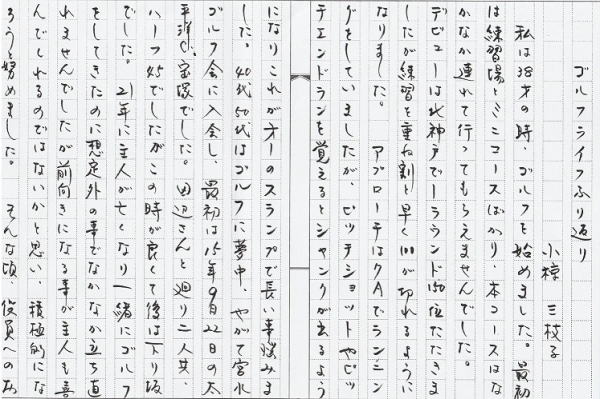 ゴルフライフふり返り
小椋 三枝子
私は38才の時、ゴルフを始めました。最初
は練習場とミニコースばかり、本コースはな
かなか連れて行ってもらえませんでした。
デビューは北神戸で一ラウンド150位たたきま
したが練習を重ね割と早く100が切れるように
なりました。 アプローチは7Aでランニン
グをしていましたが、ピッチショットやピッ
チエンドランを覚えるとシャンクが出るよう
になりこれが才一のスランプで長い事悩みま
した。40代50代はゴルフに夢中、やがて宮水
ゴルフ会に入会し、最初は15年9月22日の太
平洋C.宝塚でした。田辺さんと廻り二人共、
ハーフ45でしたがこの時が良くて後は下り坂
でした。21年に主人が亡くなり一緒にゴルフ
をしてきたのに想定外の事でなかなか立ち直
れませんでしたが前向きになる事が主人も喜
んでくれるのではないかと思い、積極的にな
ろうと努めました。 そんな頃、役員へのお